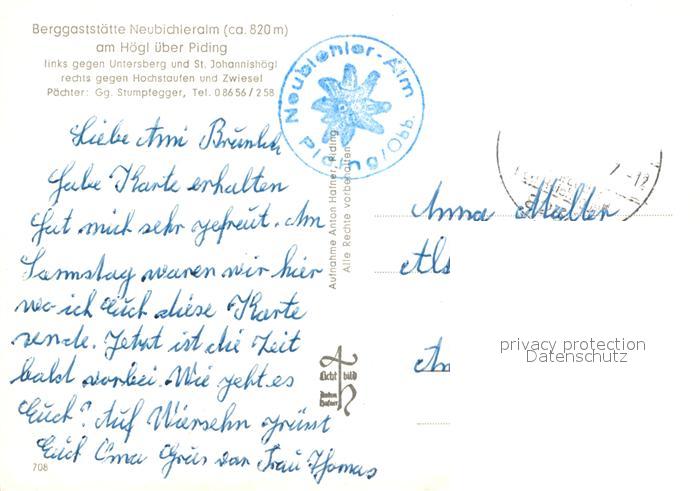 Berggaststätte Neubichleralm (ca. 820 m)
am Högl über Piding
links gegen Untersberg und St. Johannishögl
rechts gegen Hochstaufen und Zwiesel
Pächter: Gg. Stumpfegger, Tel. 0 86 56 / 2 58
Neubichler-Alm
Piding/Obb.
Liebe Ami
habe Karte erhalten
hat mich sehr gefreut. Am
Samstag waren wir hier
wo ich Euch diese Karte
sende. Jetzt ist die Zeit
bald vorbei. Wie geht es
Euch? Auf Wiersehn grüsst
Euch Oma Grus von Frau Thomas
708
Aufnahme Anton Hafner, Piding
Alle Rechte vorbehalten
Licht bild
Anton
Hafner
7.-12
Anna
Als
An
privacy protection
Datenschutz